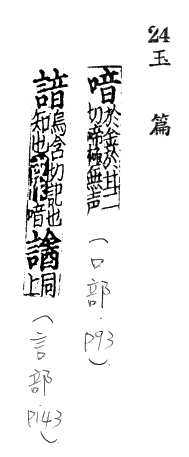 24 玉 篇
喑於金於甘二切啼極無声(口部.P93)
諳烏含切記也知也或作喑𧬌同上(言部.P143)